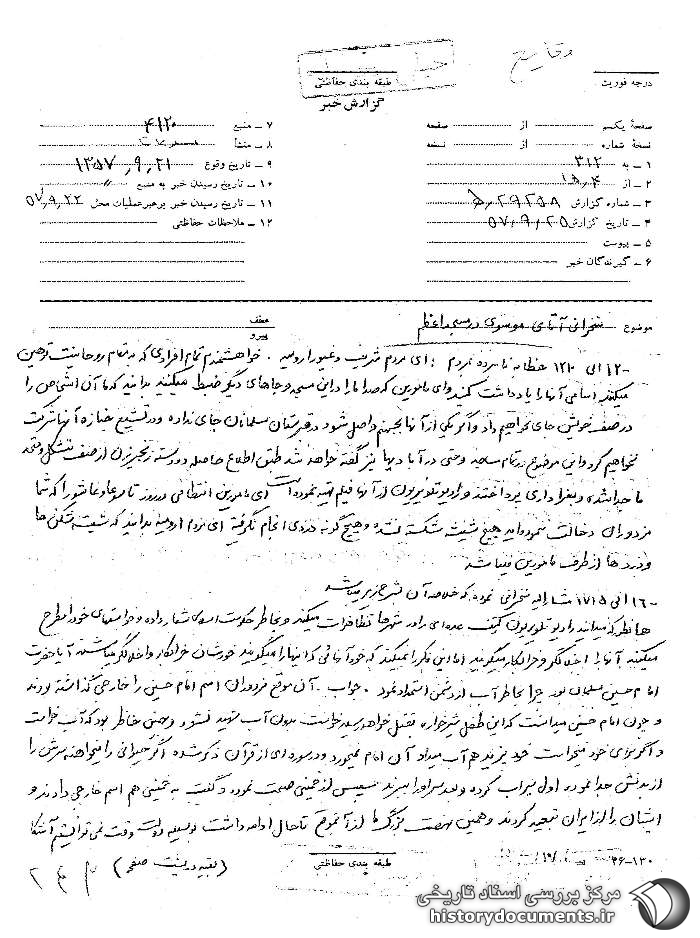 وقایع
درجه فوریت
طبقه بندی حفاظتی
گزارش خبر
صفحهٔ یکم از صفحه
نسخهٔ شماره از نسخه
۱ ـ به ۳۱۲
۲ ـ از ۱۵ه۴
۳ ـ شماره گزارش ۲۹۲۵۸
۴ ـ تاریخ گزارش ۵۷٫۹٫۲۵
۵ ـ پیوست
۶ ـ گیرندگان خبر
۷ ـ منبع ۴۱۲۰
۸ ـ منشأ
۹ ـ تاریخ وقوع ۱۳۵۷٫۹٫۲۱
۱۰ ـ تاریخ رسیدن خبر به منبع "
۱۱ ـ تاریخ رسیدن خبر برهبر عملیات محل ۵۷٫۹٫۲۲
۱۲ ـ ملاحظات حفاظتی
موضوع سخنرانی آقای موسوی در مسجد اعظم
عطف
پیرو
۱۲ الی ۱۲۱۰ خطاب به مردم : ای مردم شریف و غیور ارومیه . خواهشمندم تمام افرادی که به مقام روحانیت توهین
میکنند اسامی آنها را یادداشت کنند وای مامورین که صدا ما را در این مسجد و جاهای دیگر ضبط میکنند بدانید که ما آن اشخاص را
در صف خویش جای نخواهیم داد و اگر یکی از آنها بجهنم واصل شود در قبرستان مسلمانان جای نداره و در تشییع جنازه آنها شرکت
نخواهیم کرد و این موضوع در تمام مساجد وحتی در آبادیها نیز گفته خواهد شد طبق اطلاع حاصله دو دسته زنجیرزن از صف متشکل و متحد
ما جدا شده و بعزاداری پرداختند و رادیو تلویزیون از آنها فیلم تهیه نموده است ای مامورین انتظامی در روز تاسوعا و عاشورا که شما
مزدوران دخالت ننموده اید هیچ شیشه شکسته نشده و هیچ گونه دزدی انجام نگرفته ای مردم ارومیه بدانید که شیشه شکن ها
و دزد ها از طرف مامورین میباشد
۱۶ الی ۱۷۱۵ مشارالیه سخنرانی نموده که خلاصه آن بشرح زیر میباشد
همانطور که میدانید رادیو تلویزیون گفت عده ای را در شهرها تظاهرات میکنند و بخاطر حکومت اسلامی شعار داده و خواستهای خود را مطرح
میکنند آنها را اخلالگر و خرابکار میگویند اما این فکر را نمیکنند که خود آنهائی که اینها را میگویند خودشان خرابکار و اخلالگر میباشند آیا حضرت
امام حسین مسلمان نبود چرا بخاطر آب از دشمن استمداد نمود . جواب . آن موقع مزدوران اسم امام حسین را خارجی گذاشته بودند
و چون امام حسین میدانست که این طفل شیرخواره بقتل خواهد رسید خواست بدون آب شهید نشود و بهمین خاطر بود که آب خواست
و اگر برای خود میخواست خود یزید هم آب میداد آن امام نمیخورد و در سوره ای از قرآن ذکر شده اگر حیوانی را میخواهند سرش را
از بدنش جدا نموده اول سیراب کرده و بعد سر او را میبرند سپس از خمینی صحبت نموده و گفت به خمینی هم اسم خارجی دادند و
ایشان را از ایران تبعید کردند و همین نهضت بزرگ ما از آن موقع تا حال ادامه داشت بوسیله دولت وقت نمی توانستیم آشکا
(بقیه در پشت صفحه)
طبقه بندی حفاظتی
۳۶-۱۳۰
مرکز بررسی اسناد تاریخی
historydocuments.ir